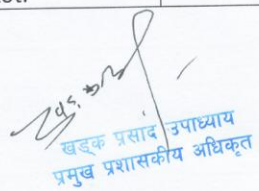 खड्क प्रसाद उपाध्याय
प्रमुख प्रशासकीय अधिकृत